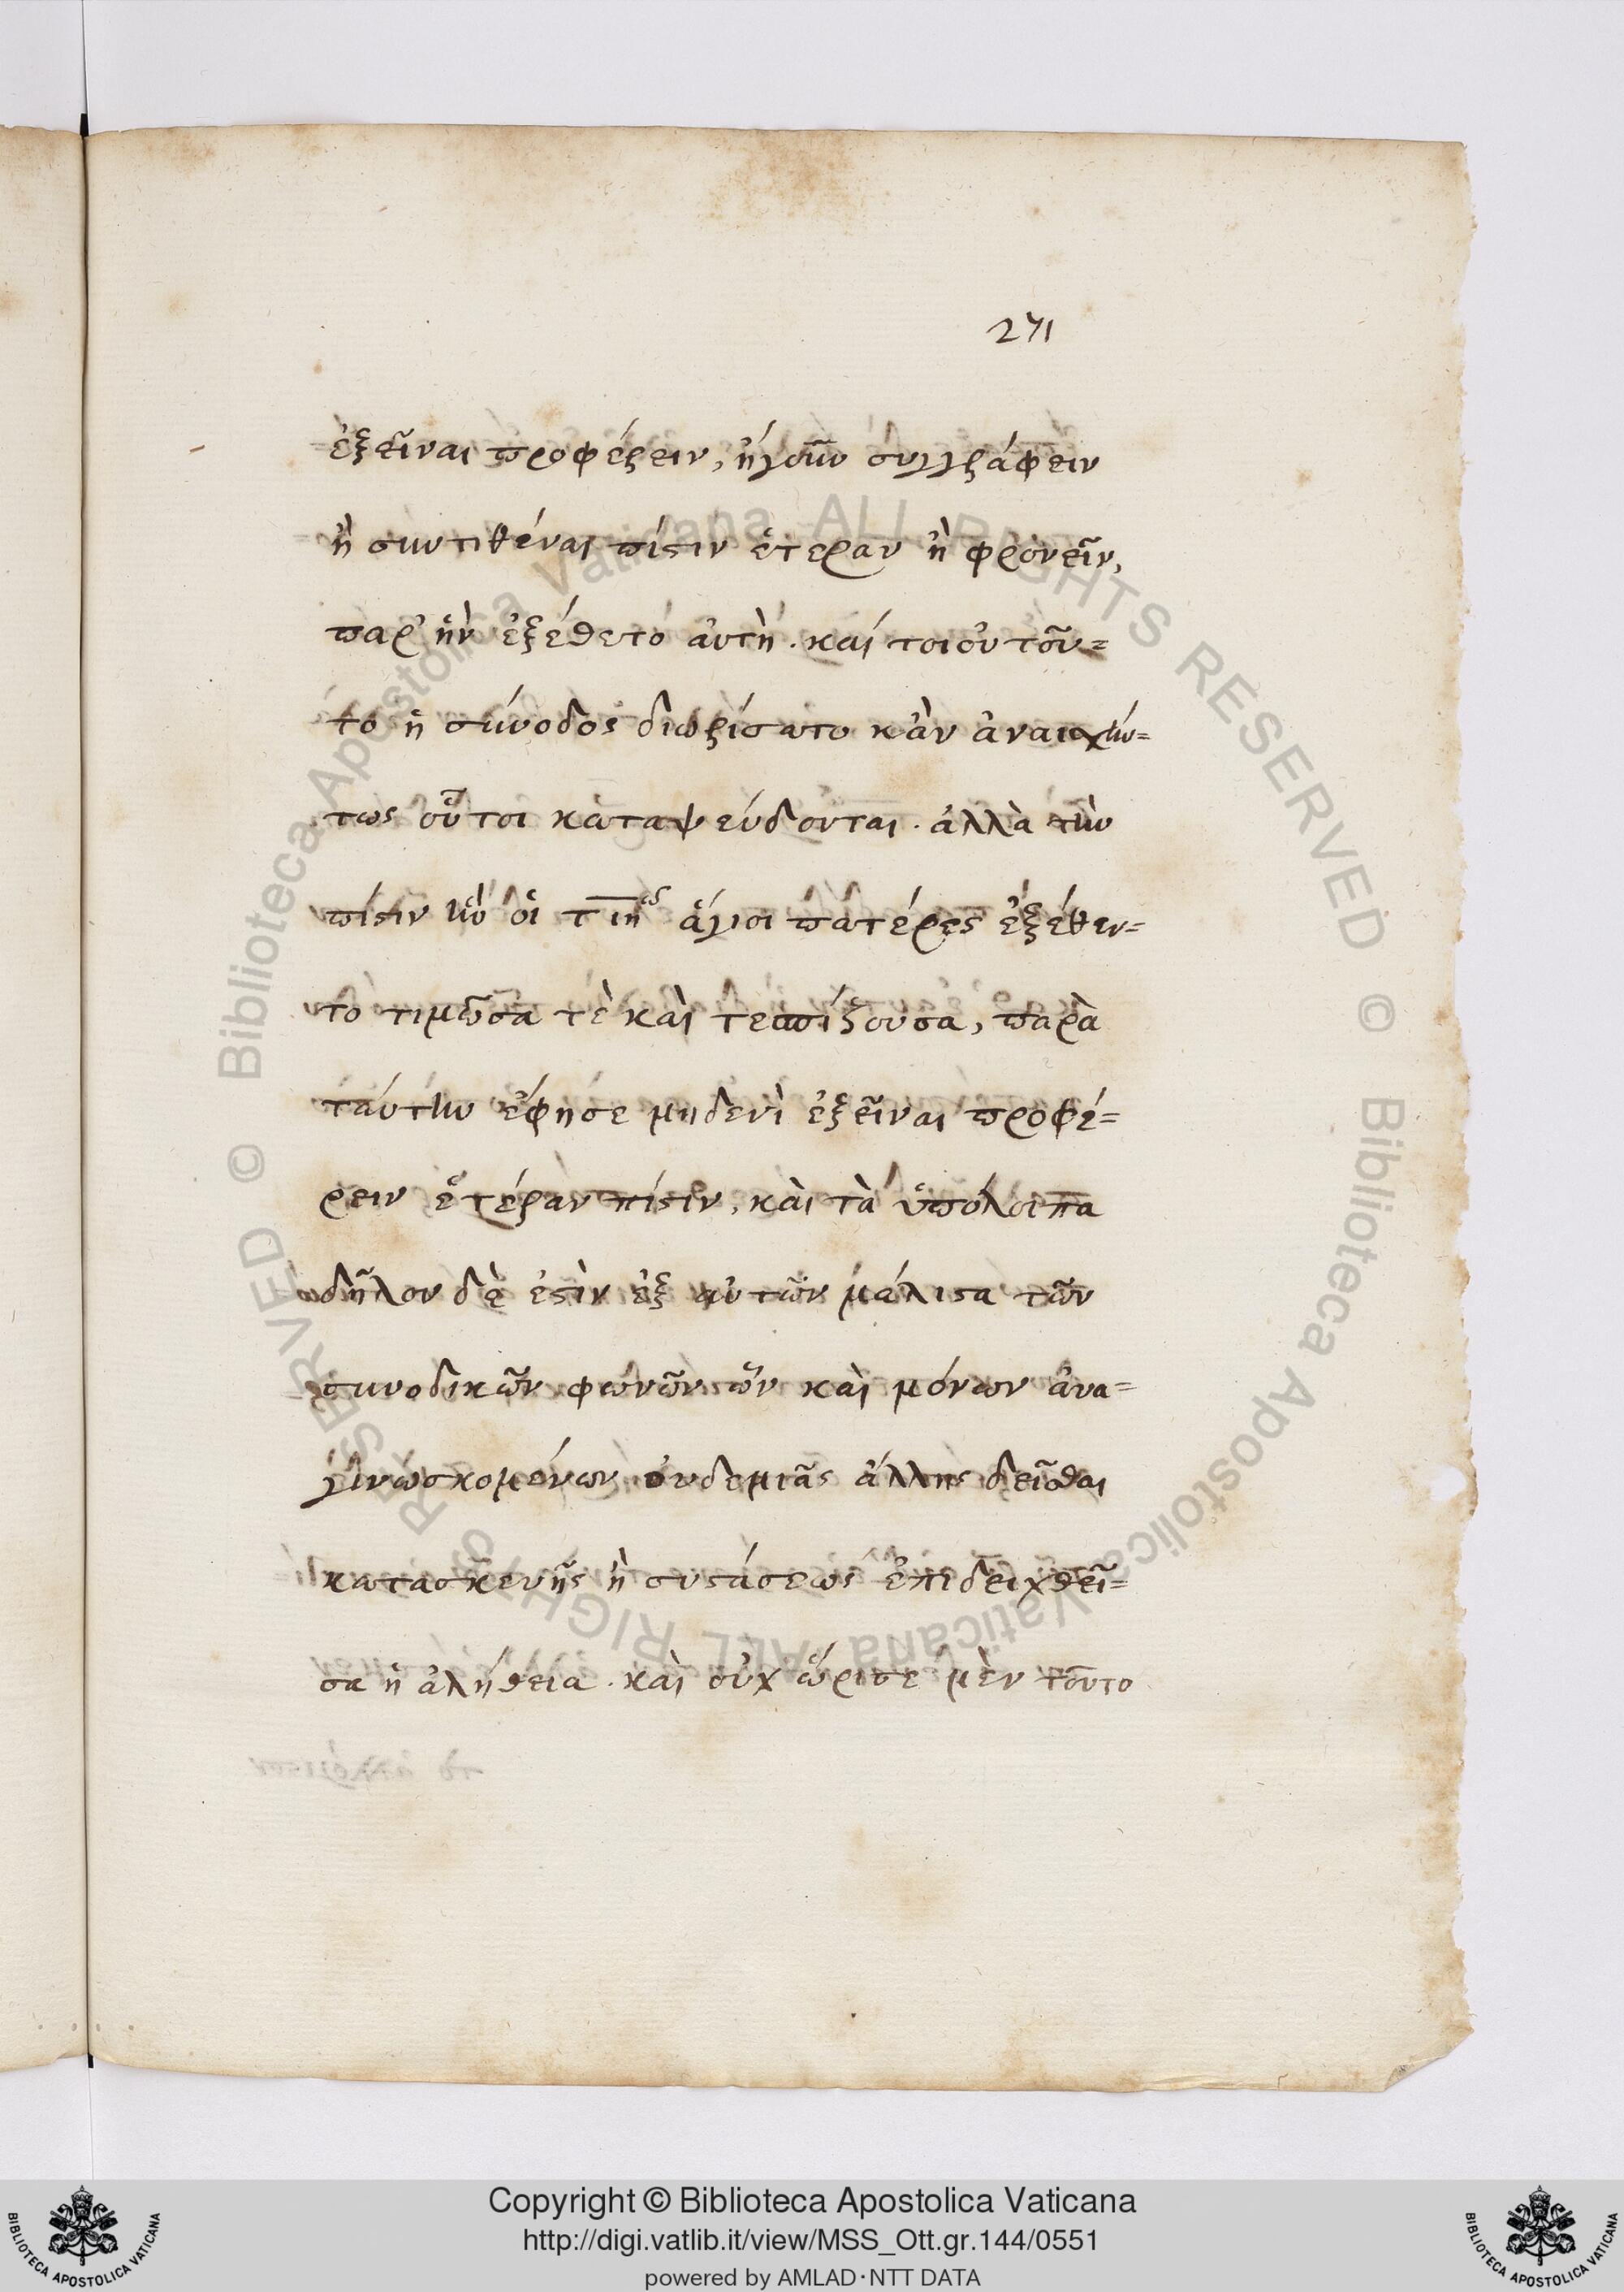 271
ἐξεῖναι προφέρειν, ἤγουν συγγράφειν
ἢ συντιθέναι πίστιν ἑτέραν ἢ φρονεῖν,
παρ' ἣν ἐξέθετο αὐτὴ. καί τοι οὐ τοῦ=
το ἡ σύνοδος διωρίσατο κἂν ἀναισχύν=
τως οὗτοι καταψεύδονται. ἀλλὰ τὴν
πίστιν ἣν οἱ τιηʹ ἅγιοι πατέρες ἐξέθεν=
το τιμῶσα τὲ καὶ
 παρὰ
ταύτην ἔφησε μηδενὶ ἐξεῖναι προφέ=
ρειν ἑτέραν πίστιν, καὶ τὰ ὑπόλοιπα
δῆλον δέ ἐστὶν ἐξ αὐτῶν μάλιστα τῶν
συνοδικῶν φωνῶν ὧν καὶ μόνων ἀνα=
γινωσκομένων οὐδεμιᾶς ἄλλης δεῖσθαι
κατασκευῆς ἢ συστάσεως ἐπιδειχθεῖ=
σα ἡ ἀλήθεια. καὶ οὐχ ὥρισε μὲν τοῦτο
© Biblioteca Apostolica Vaticana ALL RIGHTS RESERVED © Biblioteca Apostolica Vaticana ALL RIGHTS RESERVED
Copyright © Biblioteca Apostolica Vaticana
http://digi.vatlib.it/view/MSS_Ott.gr.144/0551
powered by AMLAD·NTT DATA
BIBLIOTECA APOSTOLICA VATICANA
BIBLIOTECA APOSTOLICA VATICANA